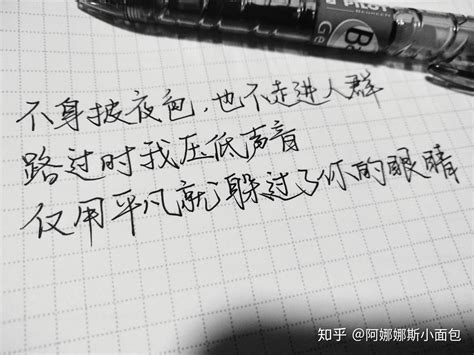 PILOT
不身披夜色，也不走进人群
路过时我压低声音
仅用平凡就躲过了你的眼睛
知乎 @阿娜娜斯小面包